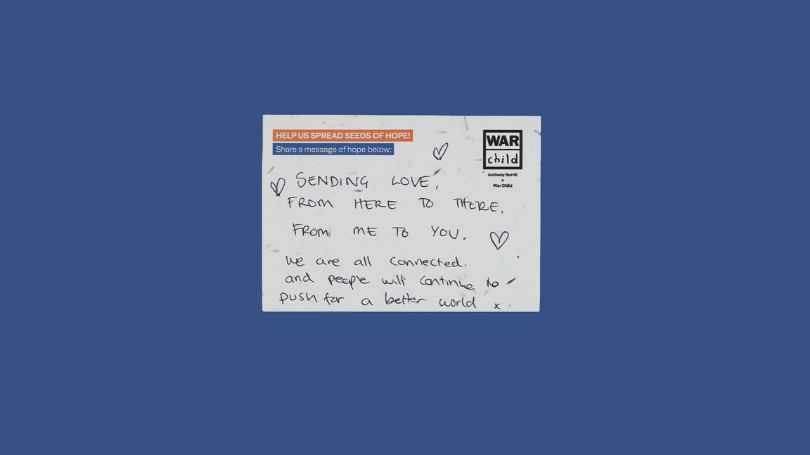 HELP US SPREAD SEEDS OF HOPE!
Share a message of hope below:
WAR
child
Anthony Burrill
+
War Child
SENDING LOVE,
FROM HERE TO THERE,
FROM ME TO YOU.
we are all connected.
and people will continue to
push for a better world x